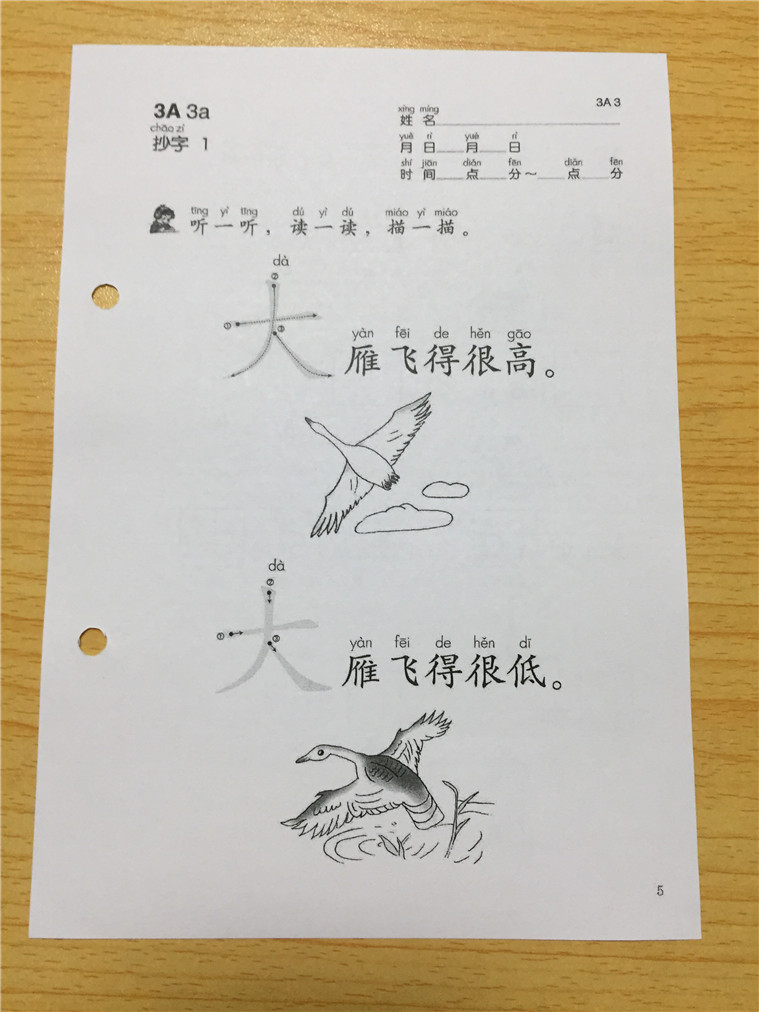 3A 3
3A 3a
xìng míng
姓 名
chāo zì
抄字 1
yuè rì yuè rì
月 日 月 日
shí jiān diǎn fēn diǎn fēn
时 间 点 分～ 点 分
tīng yì tīng dú yì dú miáo yì miáo
听一听，读一读，描一描。
dà
②
①
③
大
yàn fēi de hěn gāo
雁飞得很高。
dà
②
①
③
大
yàn fēi de hěn dī
雁飞得很低。
5